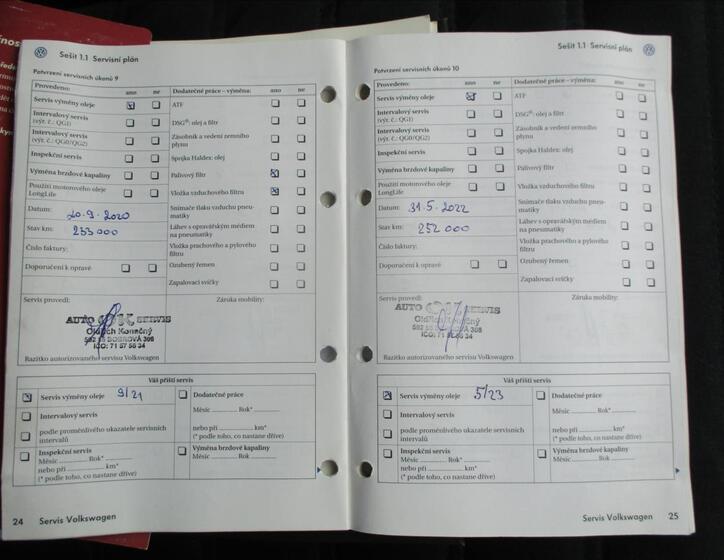 Sešit 1.1 Servisní plán
Potvrzení servisních úkonů 9
Provedeno: ano ne
Servis výměny oleje
Intervalový servis
(výr. č.: QG1)
Intervalový servis
(výr. č.: QG0/QG2)
Inspekční servis
Výměna brzdové kapaliny
Použití motorového oleje
LongLife
Datum: 20.9.2020
Stav km: 233 000
Číslo faktury:
Doporučení k opravě
Dodatečné práce – výměna: ano ne
ATF
DSG®: olej a filtr
Zásobník a vedení zemního
plynu
Spojka Haldex: olej
Palivový filtr
Vložka vzduchového filtru
Snímače tlaku vzduchu pneu-
matiky
Láhev s opravářským médiem
na pneumatiky
Vložka prachového a pylového
filtru
Ozubený řemen
Zapalovací svíčky
Servis provedl:
Záruka mobility:
AUTO OK SERVIS
Oldřich Konečný
592 55 BOBROVÁ 308
IČO: 71 87 56 34
Razítko autorizovaného servisu Volkswagen
Váš příští servis
Servis výměny oleje 9/21
Intervalový servis
podle proměnlivého ukazatele servisních
intervalů
Inspekční servis
Měsíc Rok*
nebo při km*
(* podle toho, co nastane dříve)
Dodatečné práce
Měsíc Rok*
nebo při km*
(* podle toho, co nastane dříve)
Výměna brzdové kapaliny
Měsíc Rok
24 Servis Volkswagen
Sešit 1.1 Servisní plán
Potvrzení servisních úkonů 10
Provedeno: ano ne
Servis výměny oleje
Intervalový servis
(výr. č.: QG1)
Intervalový servis
(výr. č.: QG0/QG2)
Inspekční servis
Výměna brzdové kapaliny
Použití motorového oleje
LongLife
Datum: 31.5.2022
Stav km: 252 000
Číslo faktury:
Doporučení k opravě
Dodatečné práce – výměna: ano ne
ATF
DSG®: olej a filtr
Zásobník a vedení zemního
plynu
Spojka Haldex: olej
Palivový filtr
Vložka vzduchového filtru
Snímače tlaku vzduchu pneu-
matiky
Láhev s opravářským médiem
na pneumatiky
Vložka prachového a pylového
filtru
Ozubený řemen
Zapalovací svíčky
Servis provedl:
Záruka mobility:
AUTO OK SERVIS
Oldřich Konečný
Razítko autorizovaného servisu Volkswagen
Váš příští servis
Servis výměny oleje 5/23
Intervalový servis
podle proměnlivého ukazatele servisních
intervalů
Inspekční servis
Měsíc Rok*
nebo při km*
(* podle toho, co nastane dříve)
Dodatečné práce
Měsíc Rok*
nebo při km*
(* podle toho, co nastane dříve)
Výměna brzdové kapaliny
Měsíc Rok
Servis Volkswagen 25